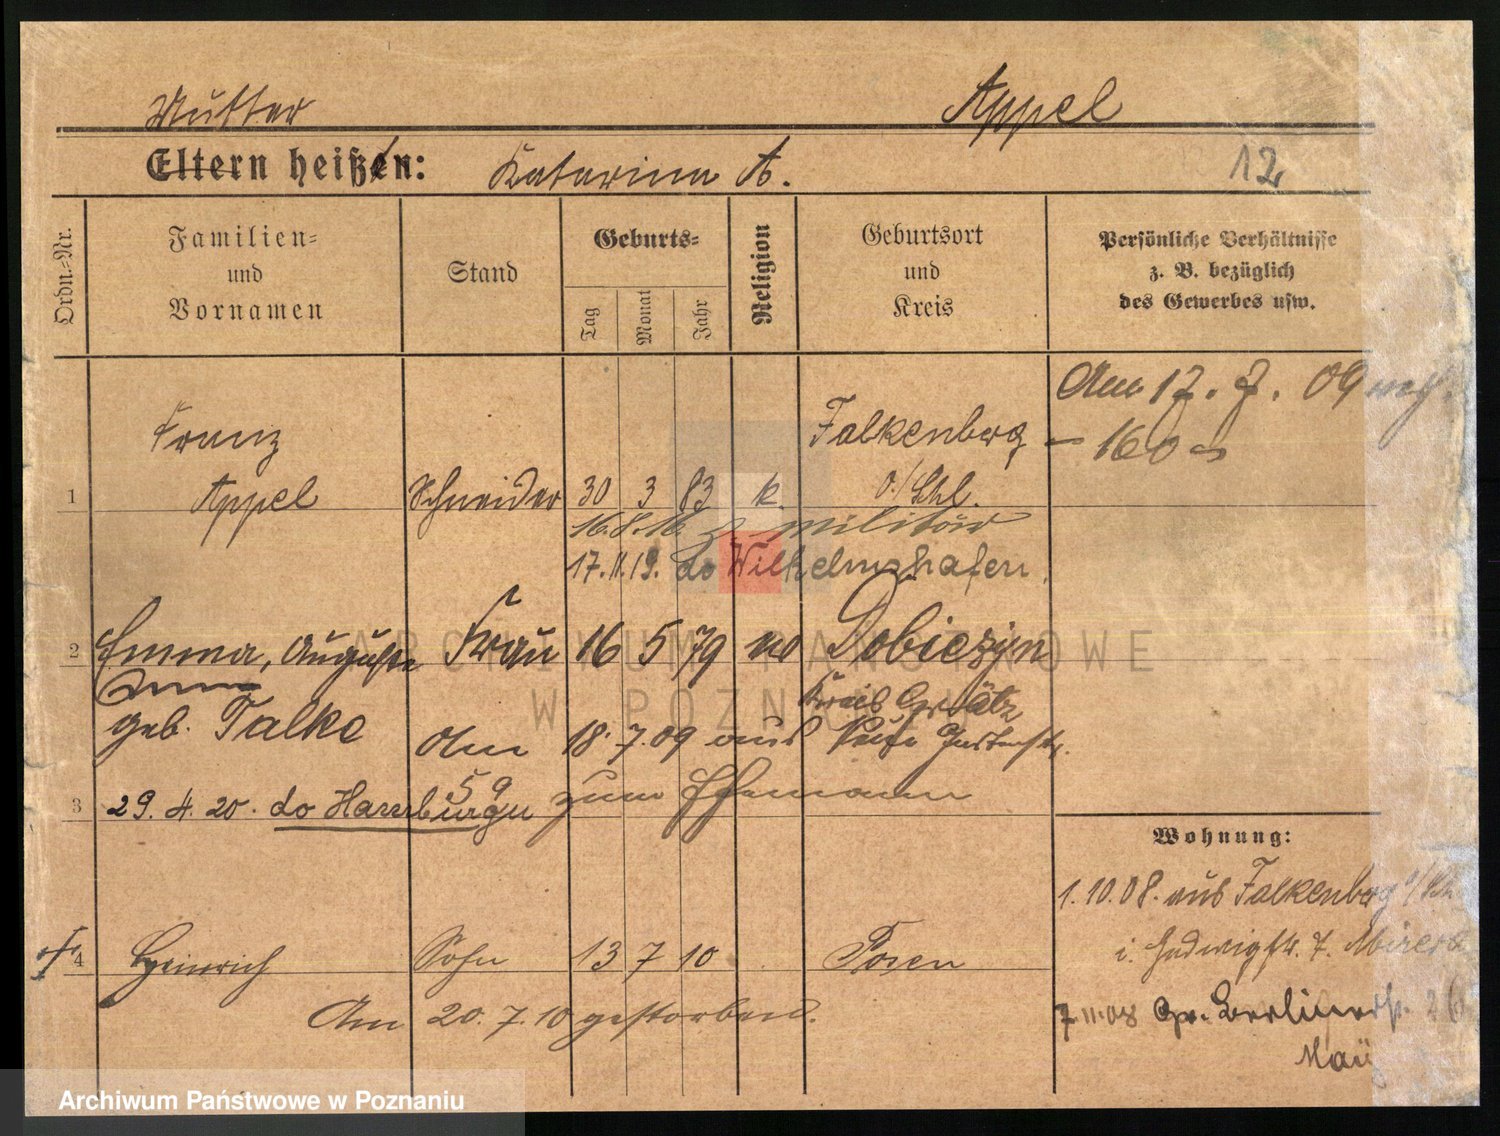 Mutter
Appel
Eltern heißen: Katarina A.
12
Ordn.-Nr.
Familien- und Vornamen
Stand
Geburts-
Tag
Monat
Jahr
Religion
Geburtsort und Kreis
Persönliche Verhältnisse
z. B. bezüglich
des Gewerbes usw.
Am 17. 7. 09
160
1
Franz
Appel
Schneider
30 3 83 k.
Falkenberg
O./Schl.
16.8.16. z. Militär
17.11.19. do Wilhelmshafen.
2
Emma, Auguste
geb. Talke
Frau
16 5 79
Dobiezyn
Kreis Grätz
Am 18. 7. 09 aus
59 zum Ehemann
3
29. 4. 20. do Hamburg
Wohnung:
1.10.08. aus Falkenberg
i. Hedwigstr. 7.
7.11.08 Gr. Berlinerstr.
4
Heinrich
Sohn
13 7 10
Posen
Am 20. 7. 10 gestorben.
ARCHIWUM PAŃSTWOWE
W POZNANIU
Archiwum Państwowe w Poznaniu